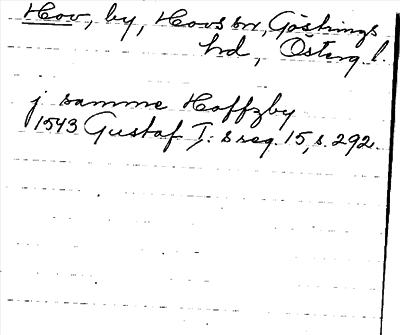 Hov, by, Hovs sn, Göstrings
hd, Österg. l.
j samme Hoffzby
1543 Gustaf I: s reg. 15, s. 292.